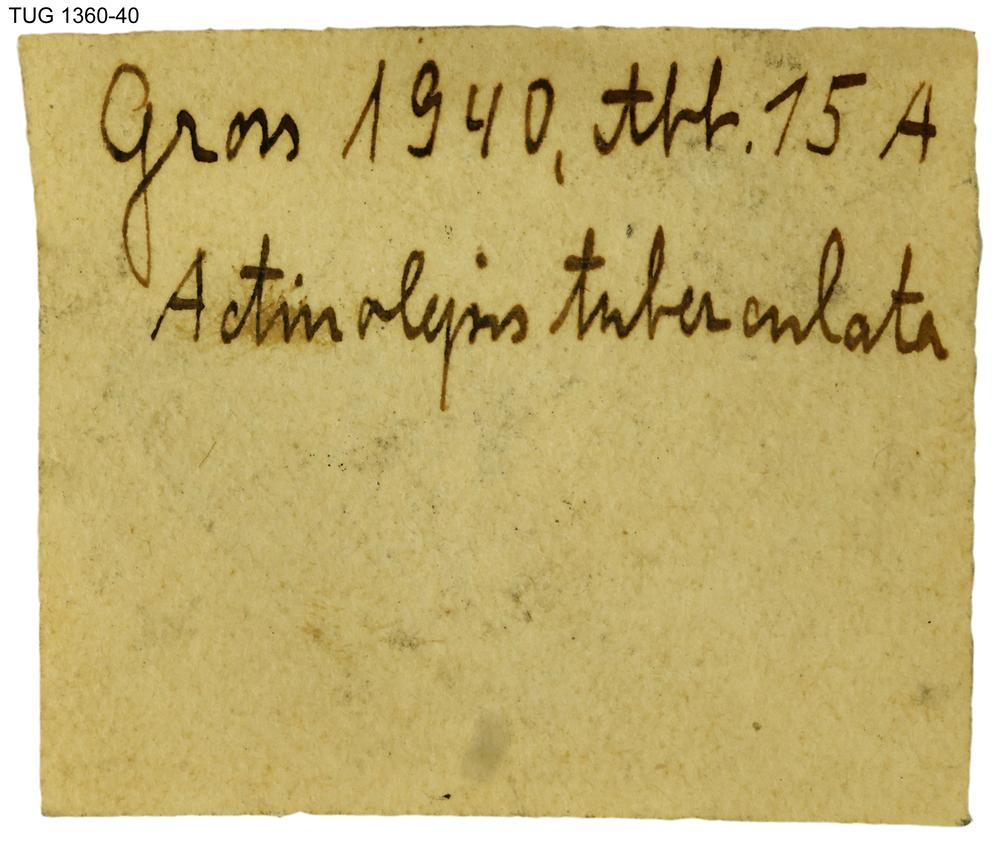 TUG 1360-40
Gross 1940, Abb. 15 A
Actinolepis tuberculata